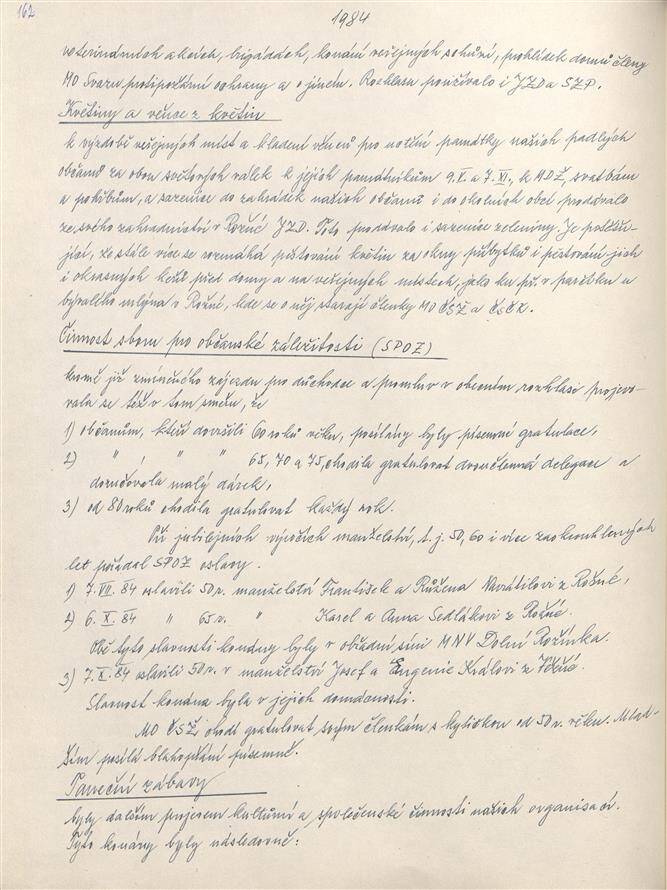 162
1984
veterinárních akcích, brigádách, konání veřejných schůzí, prohlídek domů členy
MO Svazu protipožární ochrany a o jiném. Rozhlasu používalo i JZD a SZP.
Květiny a věnce z květin
k výzdobě veřejných míst a kladení věnců pro uctění památky našich padlých
občanů za obou světových válek k jejich památníkům 9.V. a 7.XI., k MDŽ, svatbám
a pohřbům, a sazenice do zahrádek našich občanů i do okolních obcí prodávalo
ze svého zahradnictví v Rožné JZD. Toto prodávalo i sazenice zeleniny. Je potěšu-
jící, že stále více se rozmáhá pěstování květin za okny příbytků i pěstování jich
i okrasných keřů před domy a na veřejných místech, jako ku př. v parčíku u
bývalého mlýna v Rožné, kde se o něj starají členky MO ČSŽ a ČsČK.
Činnost sboru pro občanské záležitosti (SPOZ)
kromě již zmíněného zájezdu pro důchodce a promluv v obecním rozhlase projevo-
vala se též v tom směru, že
1) občanům, kteří dovršili 60 roků věku, posílány byly písemné gratulace,
2) " " " 65, 70 a 75, chodila gratulovat dvoučlenná delegace a
doručovala malý dárek,
3) od 80 roků chodila gratulovat každý rok.
Při jubilejních výročích manželství, t.j. 50, 60 i více zaokrouhlených
let pořádal SPOZ oslavy.
1) 7.VII. 84 oslavili 50 r. manželství František a Růžena Navrátilovi z Rožné,
2) 6. X. 84 " 65 r. " Karel a Anna Sedlákovi z Rožné.
Obě tyto slavnosti konány byly v obřadní síni MNV Dolní Rožínka.
3) 7.X. 84 oslavili 50 r. v manželství Josef a Eugenie Královi z
Slavnost konána byla v jejich domácnosti.
MO ČSŽ chodí gratulovat svým členkám s kytičkou od 50 r. věku. Mlad-
ším posílá blahopřání písemně.
Taneční zábavy
byly dalším projevem kulturní a společenské činnosti našich organisací.
Tyto konány byly následovně: